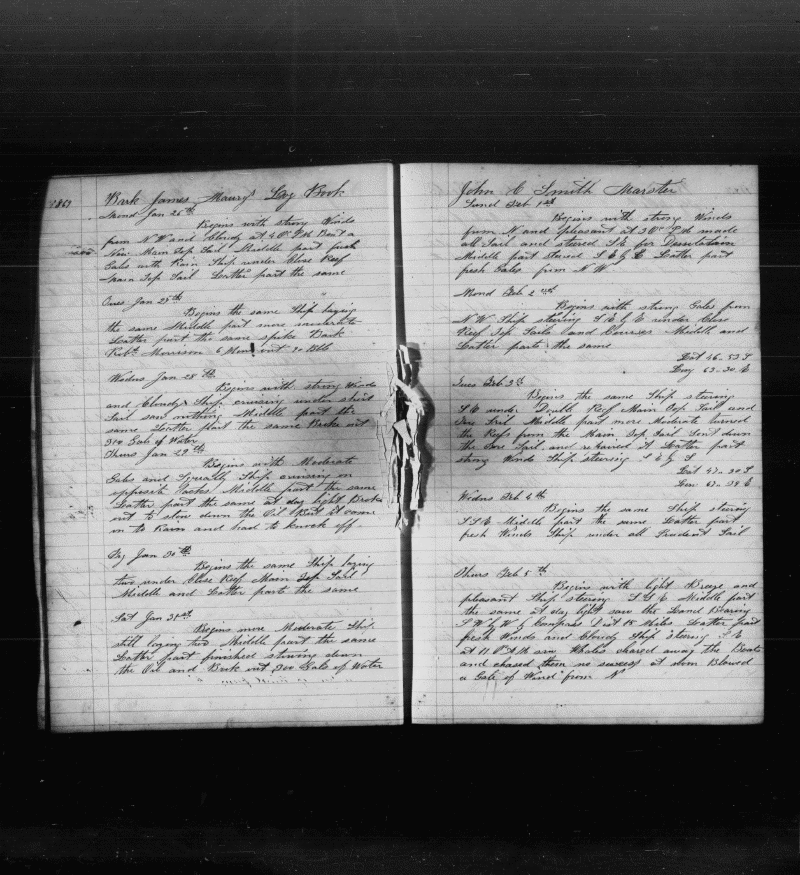 1863
Bark James Maury's Log Book
Mond Jan 26th
Begins with strong Winds
from N W and Cloudy at 4 Oc P M Bent a
New Main Top Sail Middle part fresh
Gales with Rain Ship under Close Reef
Main Top Sail Latter part the same
Tues Jan 25th
Begins the same Ship laying
the same Middle part more moderate
Latter part the same spoke Bark
Robt Morrison 6 Mons out 30 Bbls
Wedns Jan 28th
Begins with strong Winds
and Cloudy Ship cruising under short
Sail saw nothing Middle part the
same Latter part the same Broke out
300 Gals of Water
Thurs Jan 29th
Begins with Moderate
Gales and Squally Ship cruising on
opposite Tacks Middle part the same
Latter part the same at day light Broke
out to stow down the Oil But it came
on to Rain and had to knock off
Fry Jan 30th
Begins the same Ship laying
two under Close Reef Main Top Sail
Middle and Latter parts the same
Sat Jan 31st
Begins more Moderate Ship
still laying two Middle part the same
Latter part finished stowing down
the Oil and Broke out 300 Gals of Water
John C Smith Marster
Sund Feb 1st
Begins with strong Winds
from N and pleasant at 3 Oc P M made
all Sail and steered S E for Desolation
Middle part steered S E by E Latter part
fresh Gales from N W
Mond Feb 2nd
Begins with strong Gales from
N W Ship steering S E by E under Close
Reef Top Sails and Courses Middle and
Latter parts the same
Lat 46-53 S
Long 63-30 E
Tues Feb 3rd
Begins the same Ship steering
S E under Double Reef Main Top Sail and
Fore Sail Middle part more Moderate turned
the Reefs from the Main Top Sail Sent down
the Fore Sail and repaired it Latter part
strong Winds Ship steering S by E
Lat 47-30 S
Lon 67-38 E
Wedns Feb 4th
Begins the same Ship steering
S S E Middle part the same Latter part
fresh Winds Ship under all Prudent Sail
Thurs Feb 5th
Begins with light Breeze and
pleasant Ship steering S S E Middle part
the same at day light saw the Land Bearing
S W by W by Compass Dist 18 Miles Latter part
fresh Winds and Cloudy Ship steering S E
at 11 Oc A M saw Whales chased away the Boats
and chased them no success at noon Blowed
a Gale of Wind from N